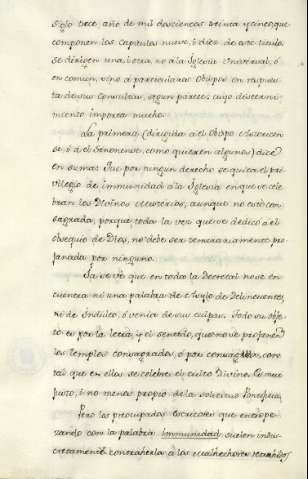 siglo trece, año de mil doscientos treinta y cinco, que
componen los capitulos nueve, i diez de este titulo
se dirigen una i otra, no a la Iglesia Universal, ó
en comun, sino a particulares Obispos en respuesta
de sus consultas, segun parece; cuyo discerni-
miento importa mucho.
La primera (dirigida á el Obispo
se, ó á el Senonense, como quieren algunos) dice
en suma: Que por ningun derecho se quita el pri-
vilegio de immunidad a la Iglesia en que se cele-
bran los Divinos mysterios, aunque no esté con-
sagrada, porque toda la vez que se dedicó a el
obsequio de Dios, no debe ser temerariamente pro-
fanada por ninguno.
Ya se vé que en toda la Decretal no se en-
cuentra ni una palabra de Asylo de Delinquentes,
ni de Indulto, ó venia de sus culpas. Todo su obje-
to es por la letra, i el sentido, que no se profanen
los templos consagrados, ó por consagrar, con
tal que en ellos se celebre el culto Divino. Es mui
justo, i no menos propio de la solicitud Pontificia,
Pero los preocupados que en trope-
zando con la palabra immunidad suelen indis-
cretamente contraherla a los malhechores